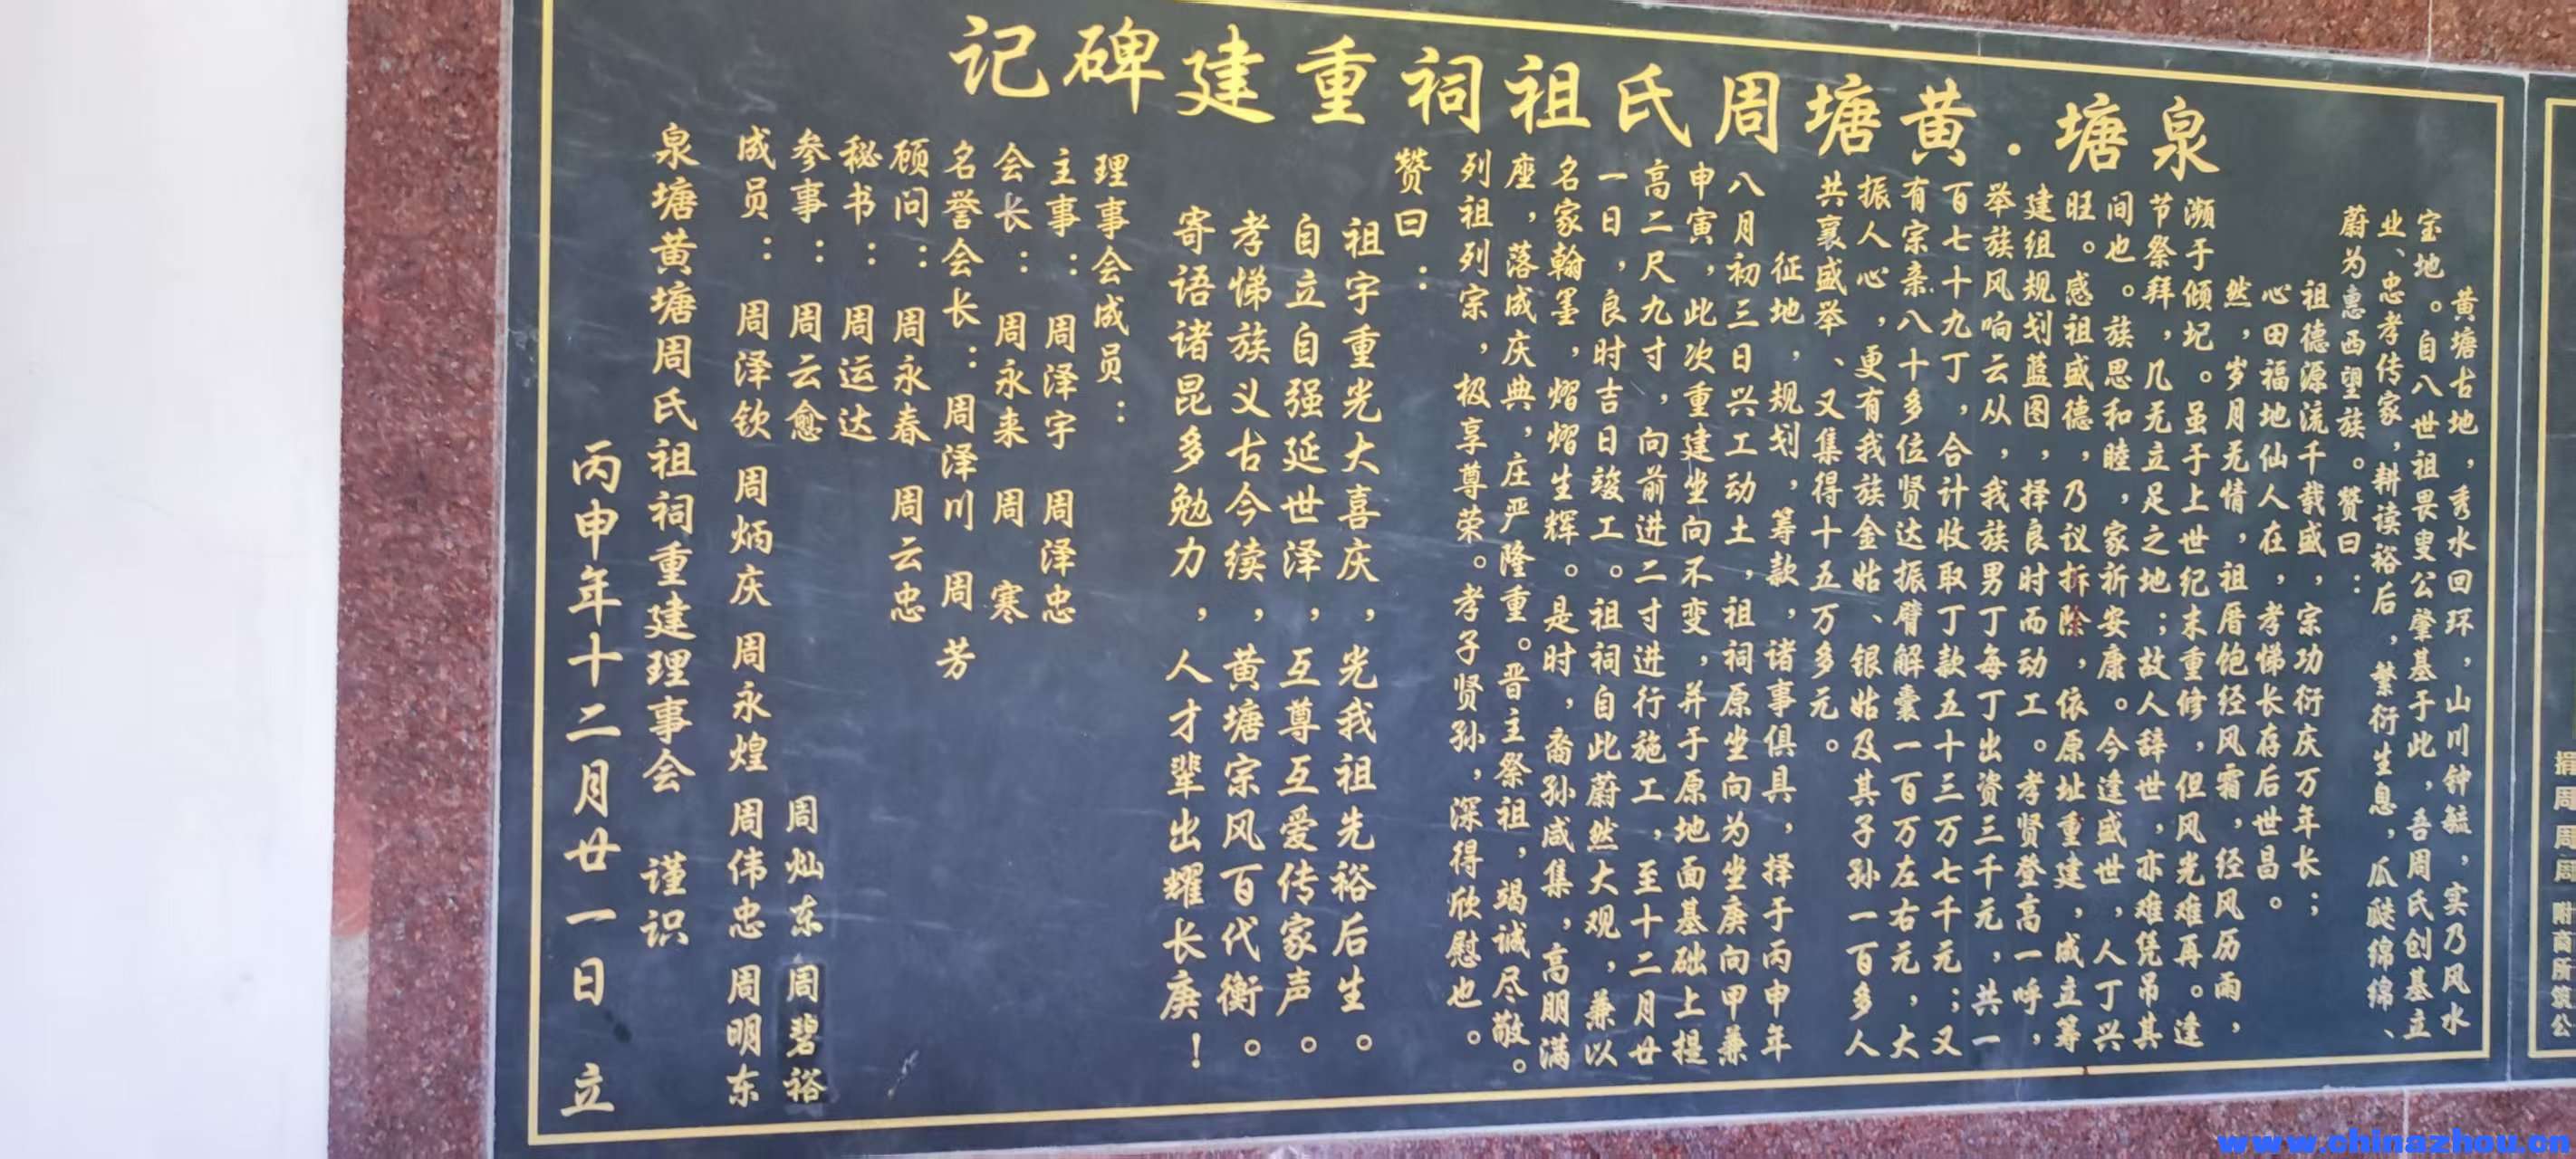 泉塘·黄塘周氏祖祠重建碑记
黄塘古地，秀水回环，山川钟毓，实乃风水
宝地。自八世祖畏叟公肇基于此，吾周氏创基立
业、忠孝传家，耕读裕后，繁衍生息，瓜瓞绵绵、
蔚为惠西望族。赞曰：
祖德源流千载盛，宗功衍庆万年长；
心田福地仙人在，孝悌长存后世昌。
然，岁月无情，祖厝饱经风霜，经风历雨，
濒于倾圮。虽于上世纪末重修，但风光难再。逢
节祭拜，几无立足之地；故人辞世，亦难凭吊其
间也。族思和睦，家祈安康。今逢盛世，人丁兴
旺。感祖盛德，乃议拆除，依原址重建，成立筹
建组规划蓝图，择良时而动工。孝贤登高一呼，
举族风响云从，我族男丁每丁出资三千元，共一
百七十九丁，合计收取丁款五十三万七千元；又
有宗亲八十多位贤达振臂解囊一百万左右元，大
振人心，更有我族金姑、银姑及其子孙一百多人
共襄盛举、又集得十五万多元。
征地，规划，筹款，诸事俱具，择于丙申年
八月初三日兴工动土，祖祠原坐向为坐庚向甲兼
申寅，此次重建坐向不变，并于原地面基础上提
高二尺九寸，向前进二寸进行施工，至十二月廿
一日，良时吉日竣工。祖祠自此蔚然大观，兼以
名家翰墨，熠熠生辉。是时，裔孙咸集，高朋满
座，落成庆典，庄严隆重。晋主祭祖，竭诚尽敬。
列祖列宗，极享尊荣。孝子贤孙，深得欣慰也。
赞曰：
祖宇重光大喜庆，光我祖先裕后生。
自立自强延世泽，互尊互爱传家声。
孝悌族义古今续，黄塘宗风百代衡。
寄语诸昆多勉力，人才辈出耀长庚！
理事会成员：
主事：周泽宇 周泽忠
会长：周永来 周寒
名誉会长：周泽川 周芳
顾问：周永春 周云忠
秘书：周运达
参事：周云愈 周灿东 周碧裕
成员：周泽钦 周炳庆 周永煌 周伟忠 周明东
泉塘黄塘周氏祖祠重建理事会 谨识
丙申年十二月廿一日 立
www.chinazhou.cn